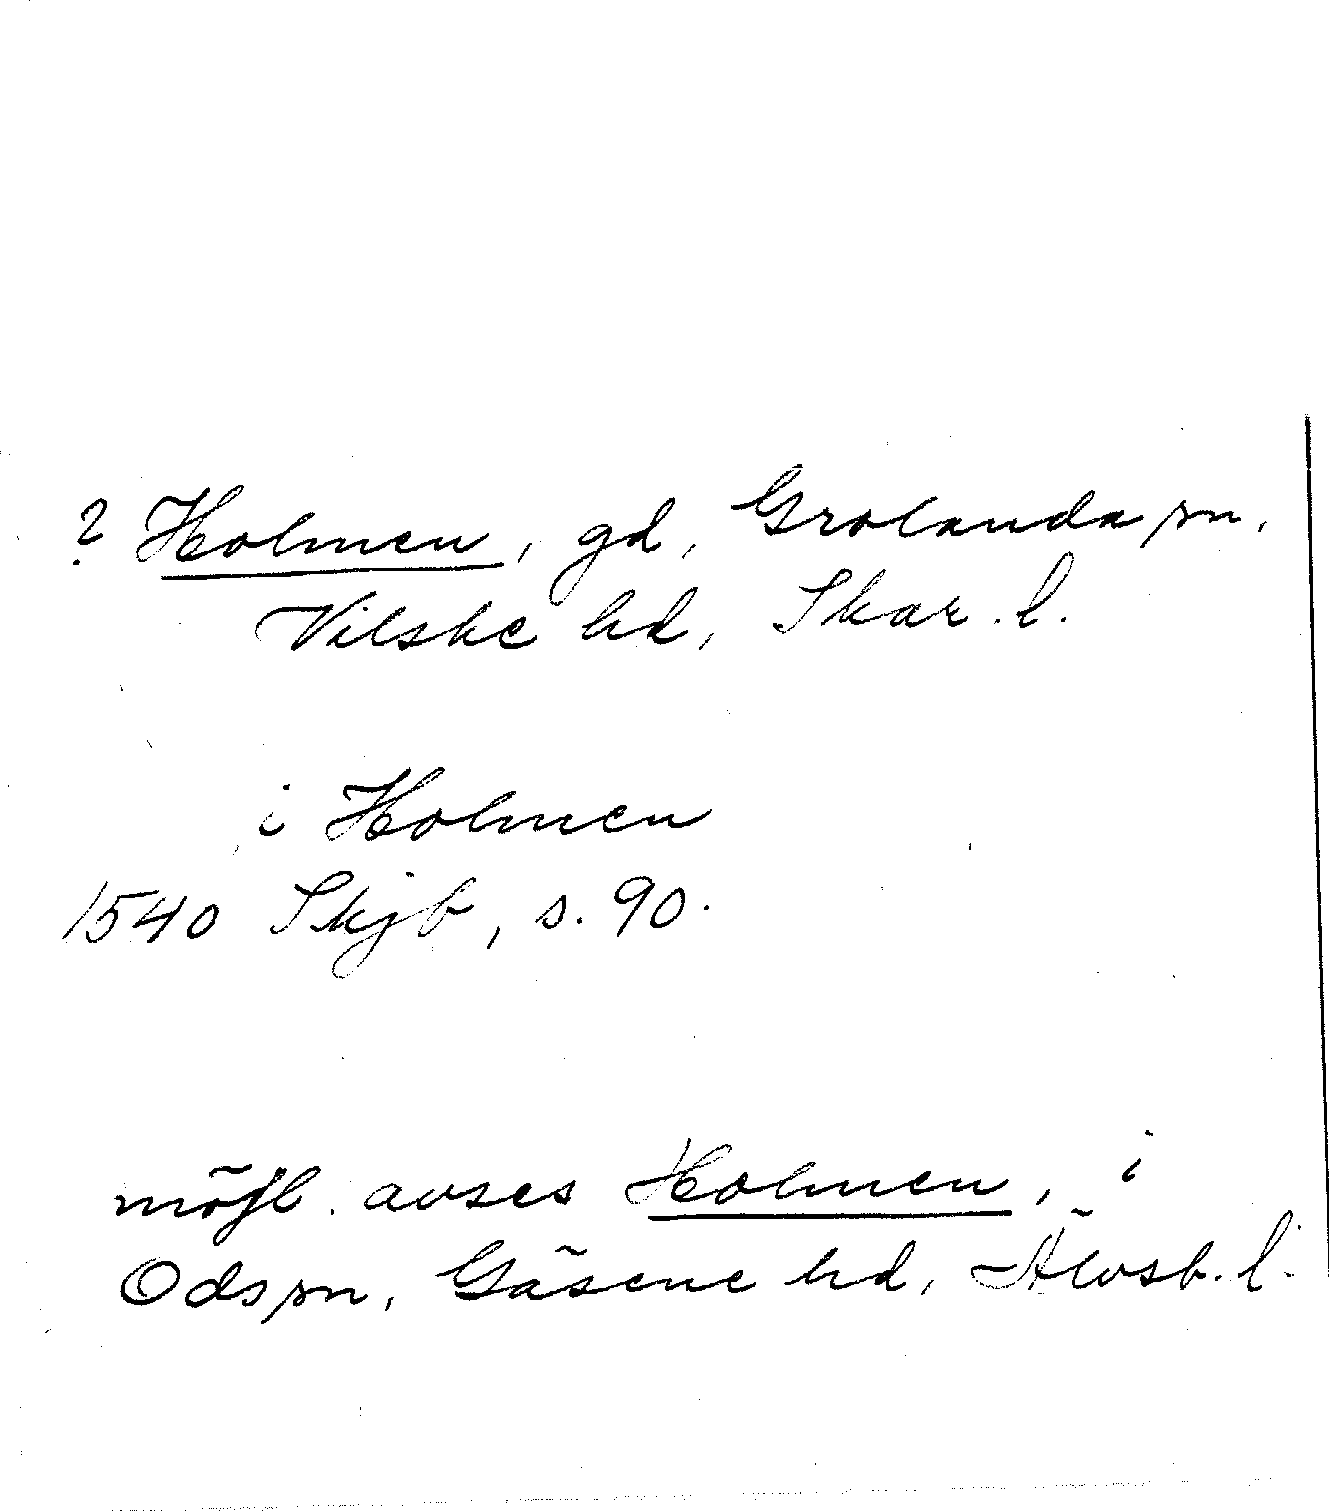 ? Holmen, gd, Grolanda sn,
Vilske hd, Skar. l.
i Holmen
1540 Skjb, s. 90.
möjl. avses Holmen, i
Ods sn, Gäsene hd, Älvsb. l.